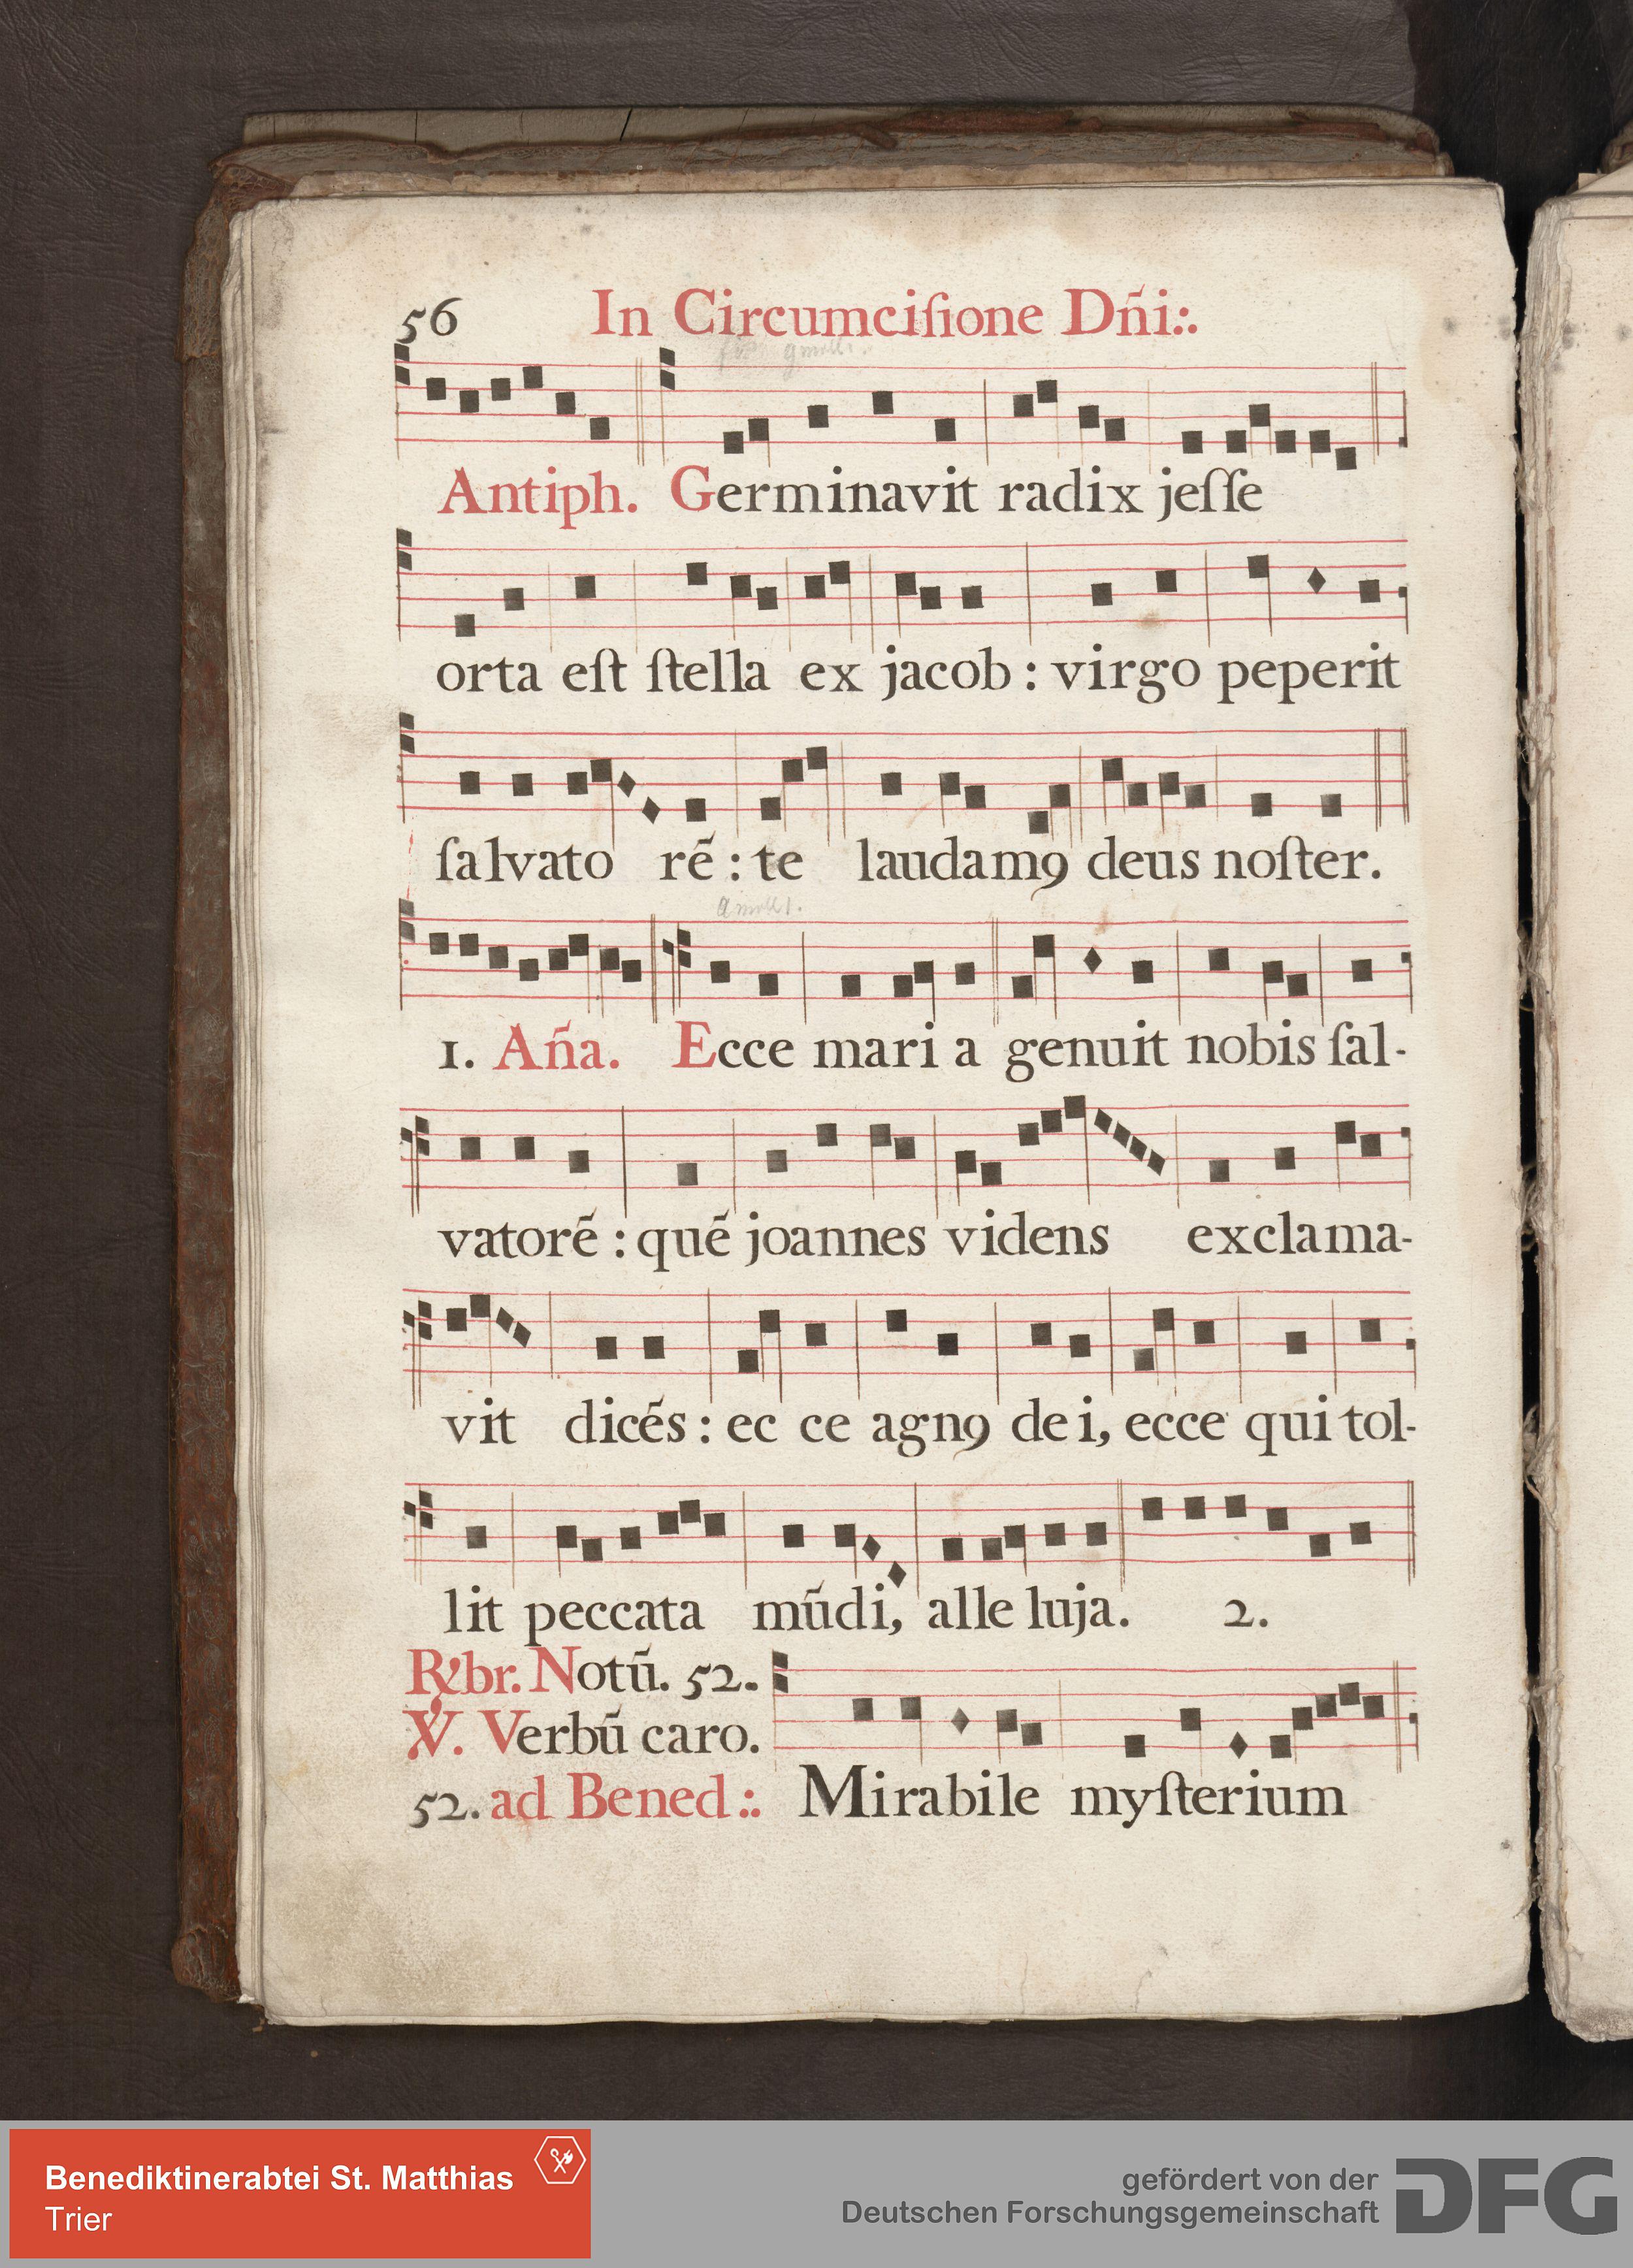 56 In Circumciſione Dñi:.
Antiph. Germinavit radix jeſſe
orta eſt ſtella ex jacob : virgo peperit
ſalvato rẽ : te laudamꝯ deus noſter.
a moll.
1. Aña. Ecce mari a genuit nobis ſal-
vatorẽ : quẽ joannes videns exclama-
vit dicẽs : ec ce agnꝯ de i, ecce qui tol-
lit peccata mũdi, alle luja. 2.
R̷br. Notũ. 52.
℣. Verbũ caro.
52. ad Bened:. Mirabile myſterium
Benediktinerabtei St. Matthias
Trier
gefördert von der
Deutschen Forschungsgemeinschaft
DFG